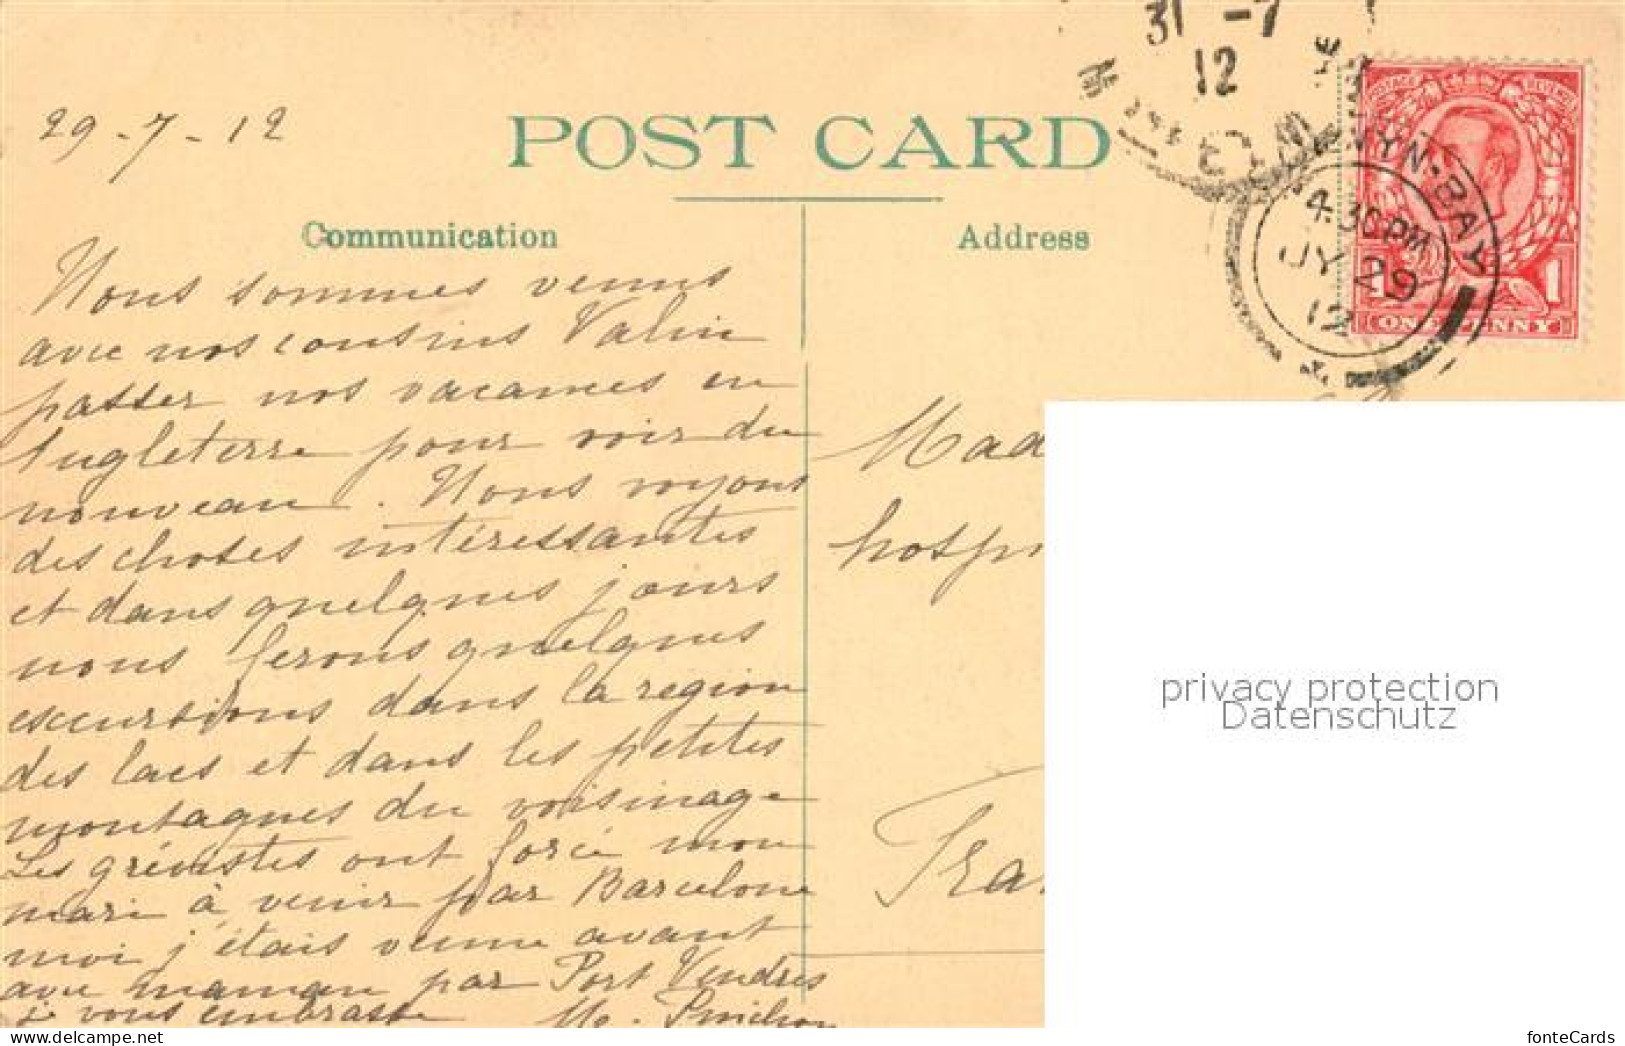 31 -7
12
29-7-12
POST CARD
COLWYN-BAY
4.30PM
JY 29
12
ONE PENNY
Communication
Address
Nous sommes venus
avec nos cousins Valin
passer nos vacances en
Angleterre pour voir du
nouveau. Nous voyons
des choses intéressantes
et dans quelques jours
nous ferons quelques
excursions dans la region
des lacs et dans les petites
montagnes du voisinage
Les grévistes ont forcé mon
mari à venir par Barcelone
moi j'étais venue avant
avec maman par Port Vendres
je vous embrasse M.
Mad
hosp
Fra
privacy protection
Datenschutz
fonteCards